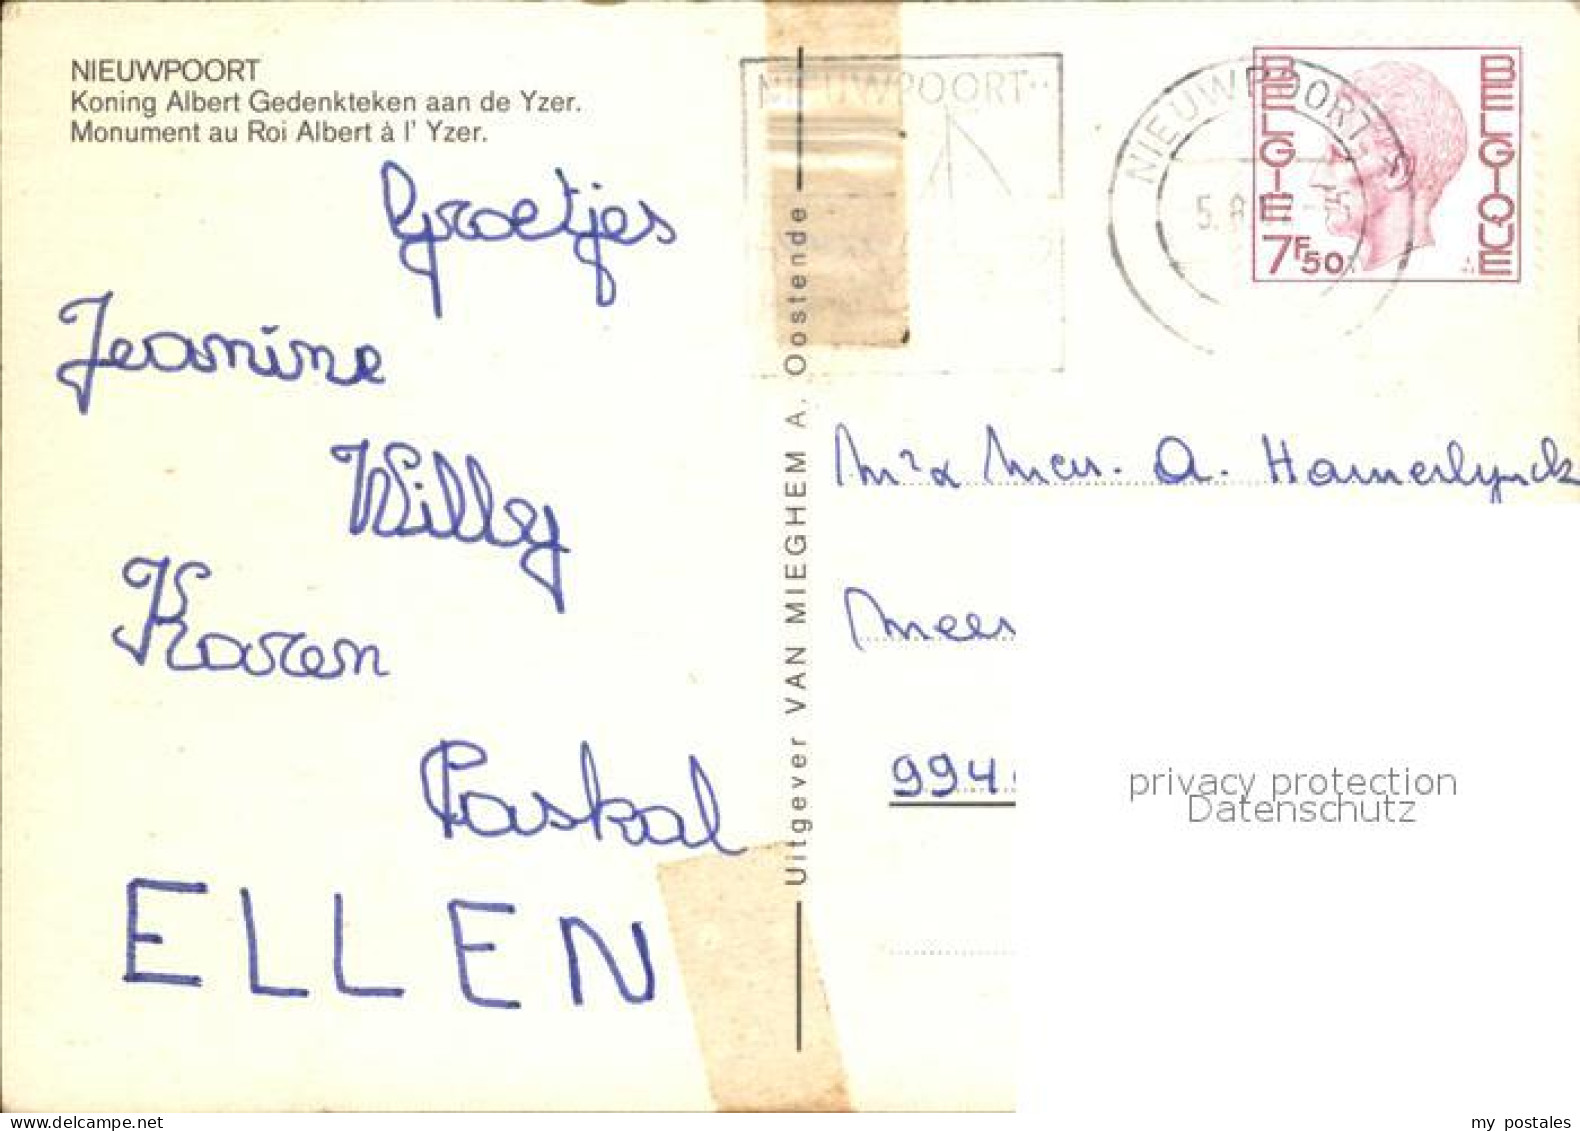 NIEUWPOORT
Koning Albert Gedenkteken aan de Yzer.
Monument au Roi Albert à l' Yzer.
Groetjes
Jeanine
Willy
Karen
Paskal
ELLEN
Uitgever VAN MIEGHEM A. Oostende
NIEUWPOORT
NIEUWPOORT
BELGIE
BELGIQUE
7F50
Mr & Mev. A. Hamerlynck
994
privacy protection
Datenschutz
my postales